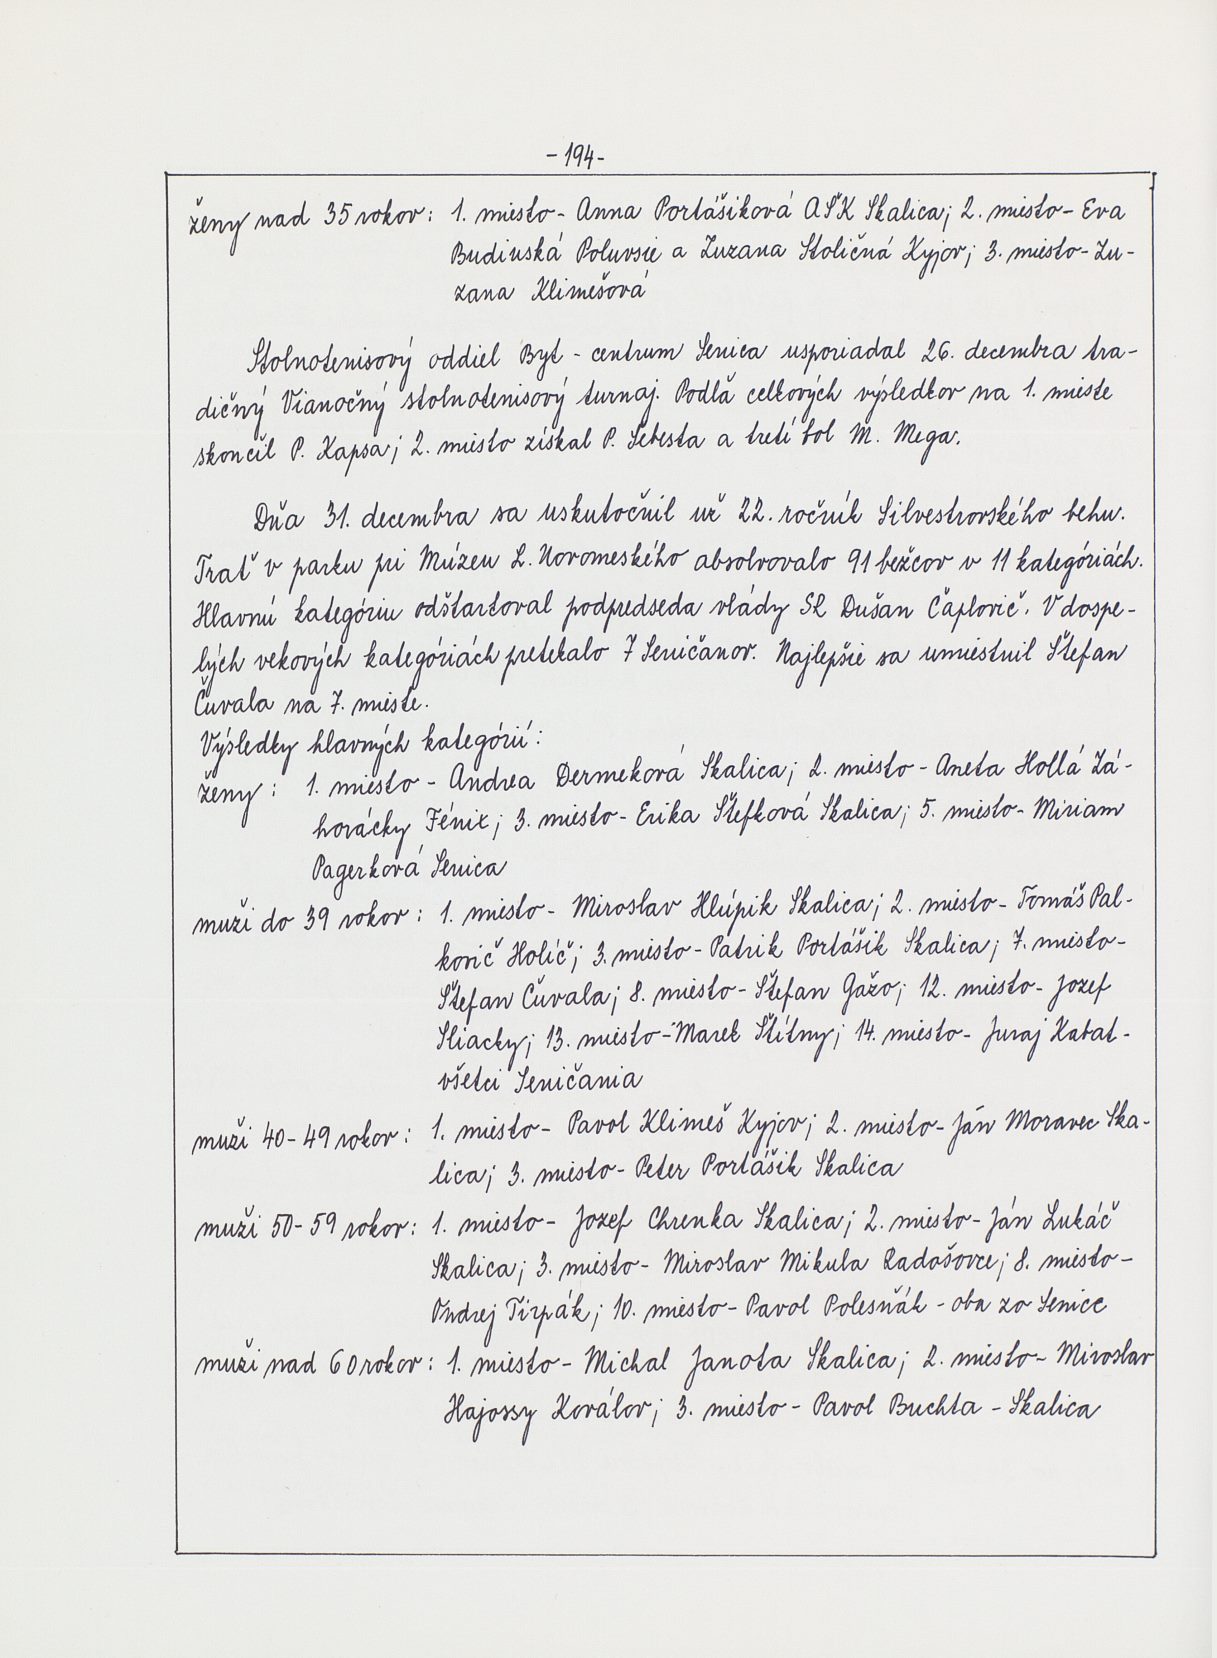 - 194 -
ženy nad 35 rokov: 1. miesto - Anna Portášiková AŠK Skalica; 2. miesto - Eva
Budinská Poluvsie a Zuzana Stoličná Kyjov; 3. miesto - Zu-
zana Klimešová
Stolnotenisový oddiel Byt - centrum Senica usporiadal 26. decembra tra-
dičný Vianočný stolnotenisový turnaj. Podľa celkových výsledkov na 1. mieste
skončil P. Kapsa; 2. miesto získal P. Sebesta a tretí bol M. Mega.
Dňa 31. decembra sa uskutočnil už 22. ročník Silvestrovského behu.
Trať v parku pri Múzeu L. Novomeského absolvovalo 91 bežcov v 11 kategóriách.
Hlavnú kategóriu odštartoval podpredseda vlády SR Dušan Čaplovič. V dospe-
lých vekových kategóriách pretekalo 7 Seničanov. Najlepšie sa umiestnil Štefan
Čuvala na 7. mieste.
Výsledky hlavných kategórií:
ženy: 1. miesto - Andrea Dermeková Skalica; 2. miesto - Aneta Hollá Zá-
horácky Fénix; 3. miesto - Erika Štefková Skalica; 5. miesto - Miriam
Pagerková Senica
muži do 39 rokov: 1. miesto - Miroslav Hlúpik Skalica; 2. miesto - Tomáš Pal-
kovič Holíč; 3. miesto - Patrik Portášik Skalica; 7. miesto -
Štefan Čuvala; 8. miesto - Štefan Gažo; 12. miesto - Jozef
Sliacky; 13. miesto - Marek Štítny; 14. miesto - Juraj Kabat -
všetci Seničania
muži 40 - 49 rokov: 1. miesto - Pavol Klimeš Kyjov; 2. miesto - Ján Moravec Ska-
lica; 3. miesto - Peter Portášik Skalica
muži 50 - 59 rokov: 1. miesto - Jozef Chrenka Skalica; 2. miesto - Ján Lukáč
Skalica; 3. miesto - Miroslav Mikula Radošovce; 8. miesto -
Ondrej Tirpák; 10. miesto - Pavol Polesňák - oba zo Senice
muži nad 60 rokov: 1. miesto - Michal Janota Skalica; 2. miesto - Miroslav
Hajossy Koválov; 3. miesto - Pavol Buchta - Skalica